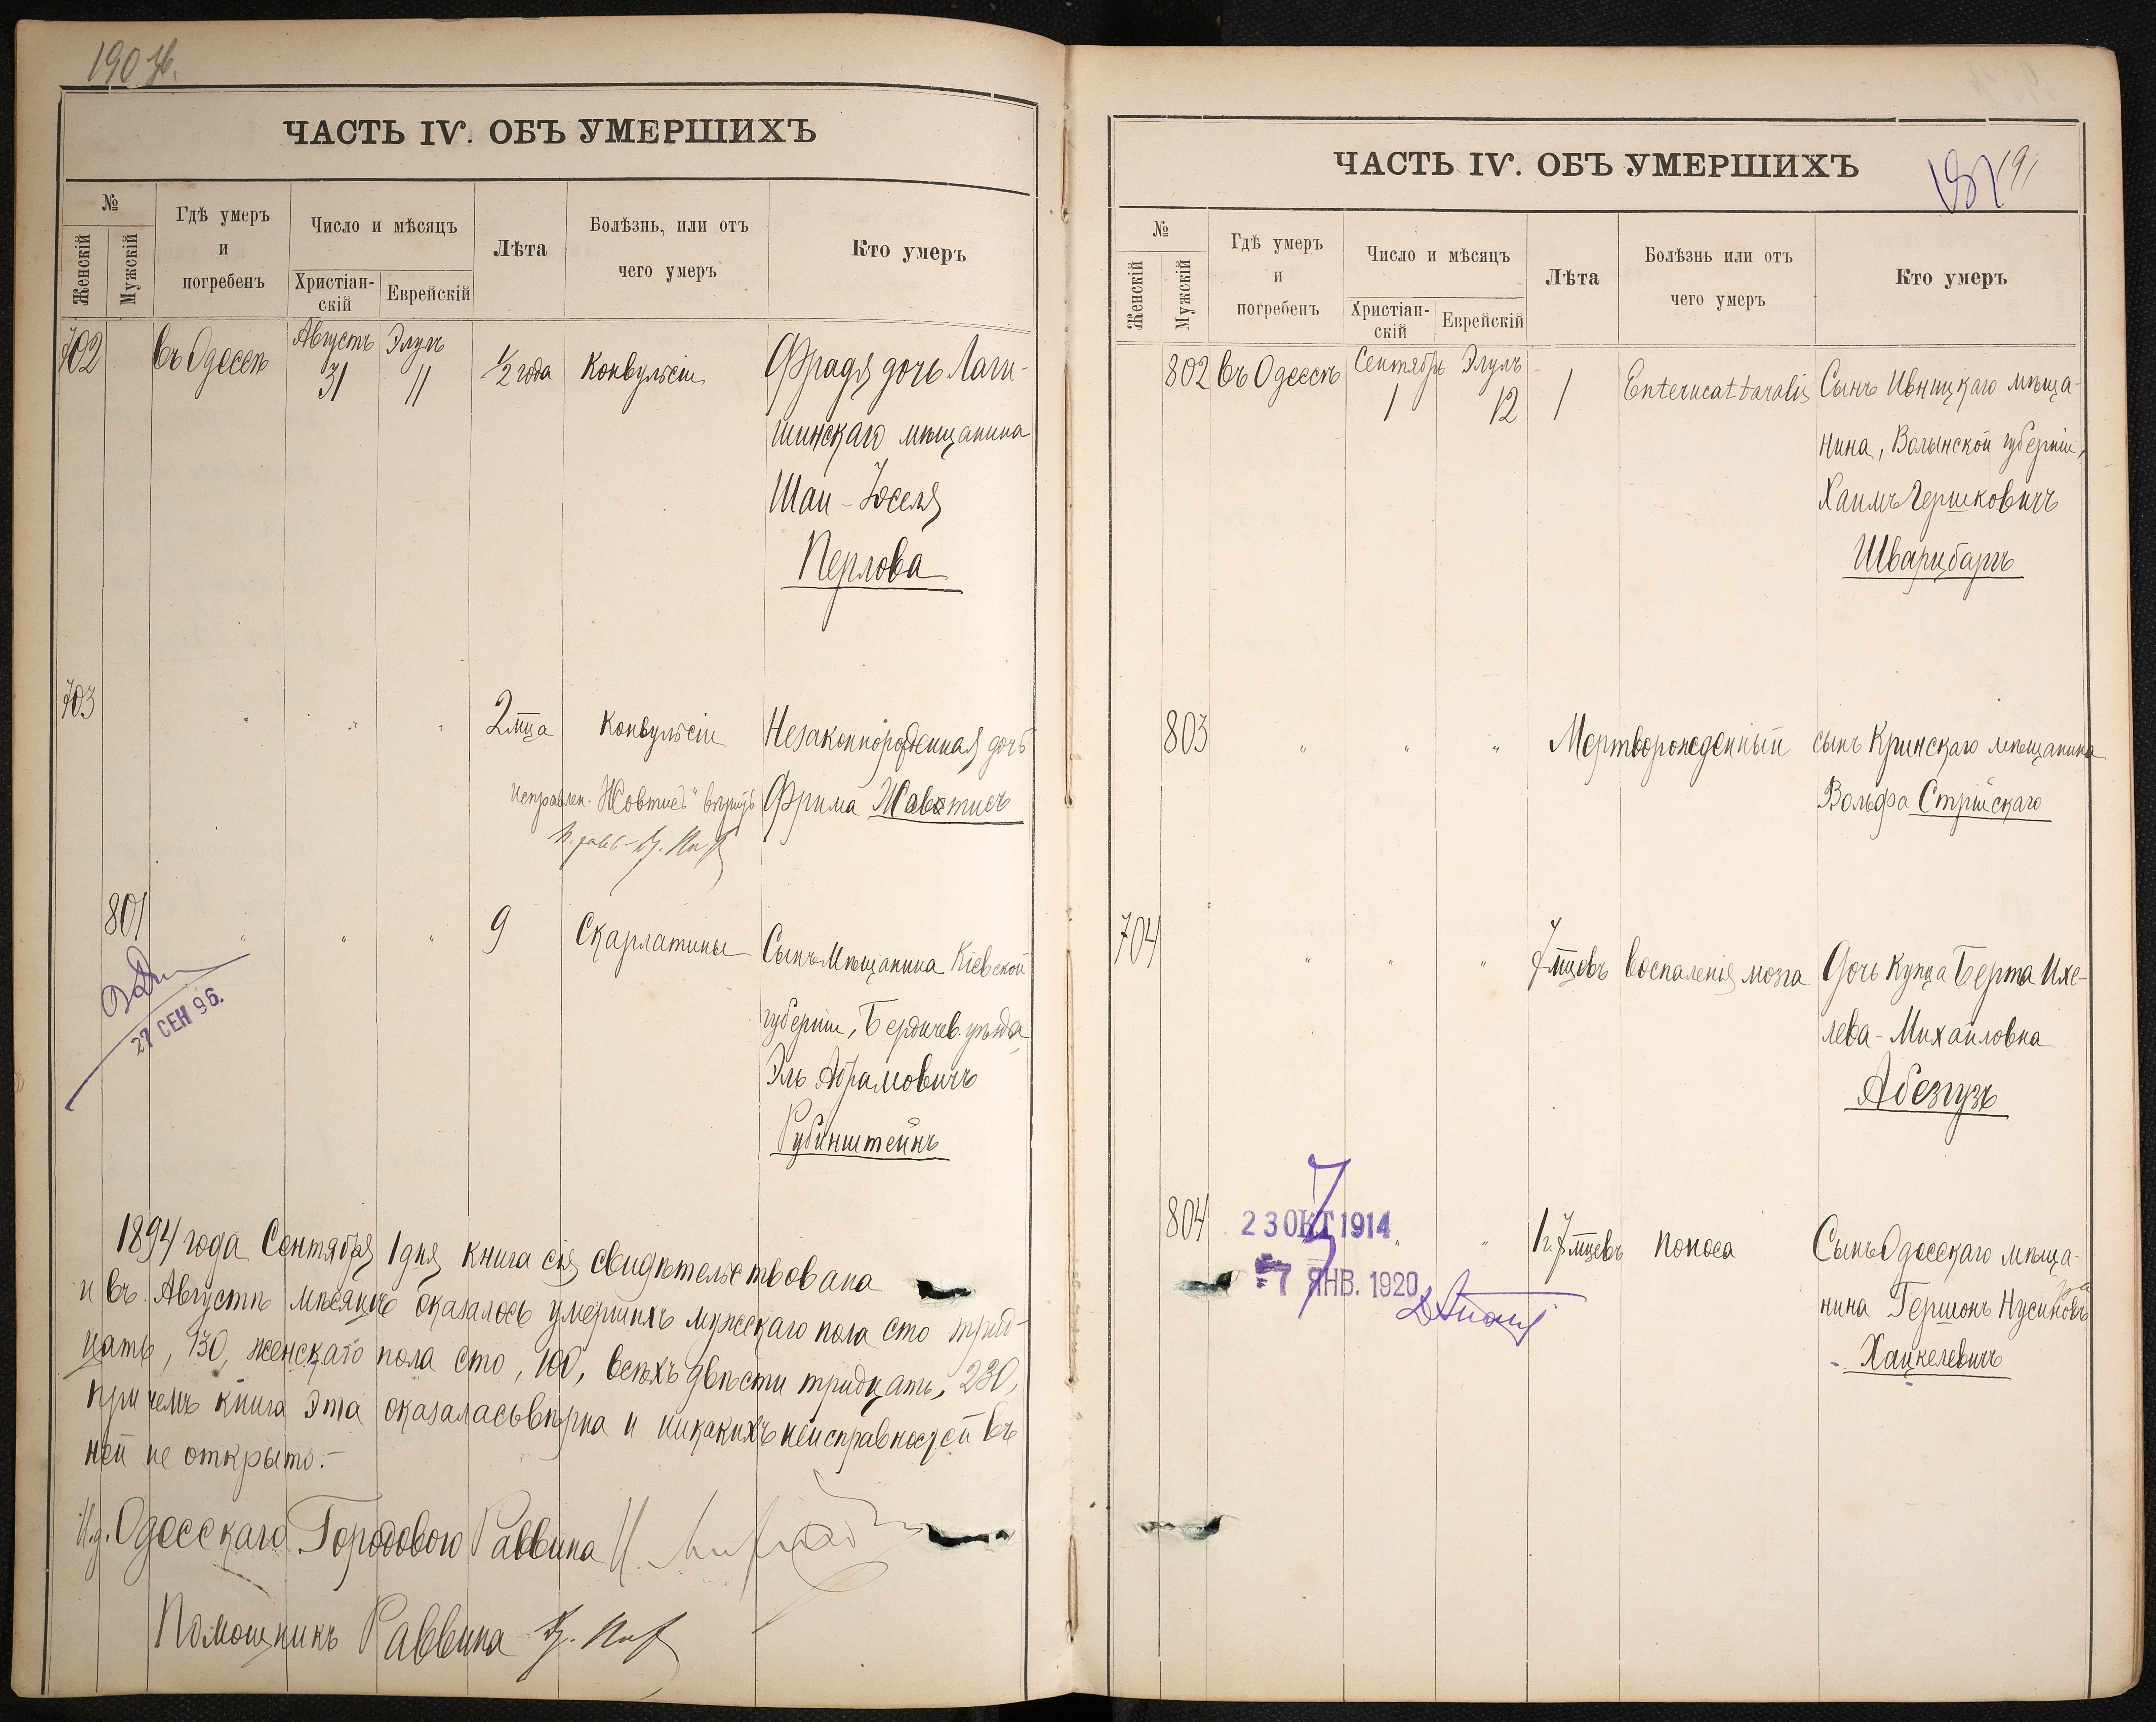 190 об.
ЧАСТЬ IV. ОБЪ УМЕРШИХЪ
№
Женскій
Мужскій
Гдѣ умеръ
и
погребенъ
Число и мѣсяцъ
Христіан-
скій
Еврейскій
Лѣта
Болѣзнь, или отъ
чего умеръ
Кто умеръ
702 въ Одессѣ Августъ 31 Элулъ 11 1/2 года Конвульсіи Фрадя дочь Лаги-
шинскаго мѣщанина
Шаи-Іоселя
Перлова
703 " " " 2 мѣца Конвульсіи Незаконнорожденная дочь
Исправлен. "Жовтисъ" вѣрно Фрима Жавтисъ
801 " " " 9 Скарлатины Сынъ Мѣщанина Кіевской
губерніи, Бердичев. уѣзда,
Эль Абрамовичъ
Рубинштейнъ
27 СЕН 96.
1894 года Сентября 1 дня книга сія свидѣтельствована
и въ Августѣ мѣсяцѣ оказалось умершихъ мужскаго пола сто трид-
цать, 130, женскаго пола сто, 100, всѣхъ двѣсти тридцать, 230,
при чемъ книга эта оказалась вѣрна и никакихъ неисправностей въ
ней не открыто.-
И.д. Одесскаго Городового Раввина
Помощникъ Раввина
ЧАСТЬ IV. ОБЪ УМЕРШИХЪ
191
№
Женскій
Мужскій
Гдѣ умеръ
и
погребенъ
Число и мѣсяцъ
Христіан-
скій
Еврейскій
Лѣта
Болѣзнь или отъ
чего умеръ
Кто умеръ
802 въ Одессѣ Сентябрь 1 Элулъ 12 1 Enterucattaralis Сынъ Ивницкаго мѣща-
нина, Волынской губерніи,
Хаимъ Гершковичъ
Шварцбаргъ
803 " " " Мертворожденный сынъ Кринскаго мѣщанина
Вольфа Стрійскаго
704 " " " 7 мѣцевъ воспаленія мозга Дочь купца Берта Ихе-
лева-Михайловна
Абезгузъ
804 " " 1 г. 7 мѣцевъ поноса Сынъ Одесскаго мѣща-
нина Гершонъ Нусиновъ
Хацкелевичъ
23 ОКТ 1914
7 ЯНВ. 1920